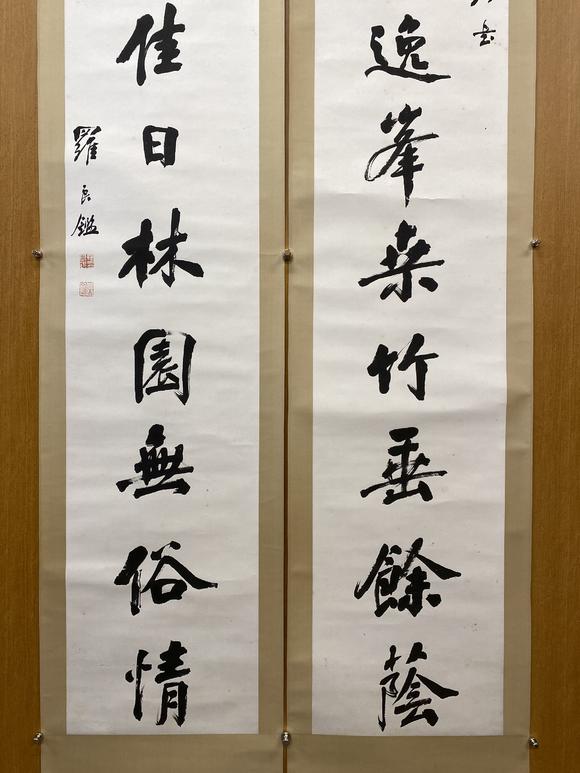 逸峯桒竹垂餘蔭
佳日林園無俗情
羅良鑑